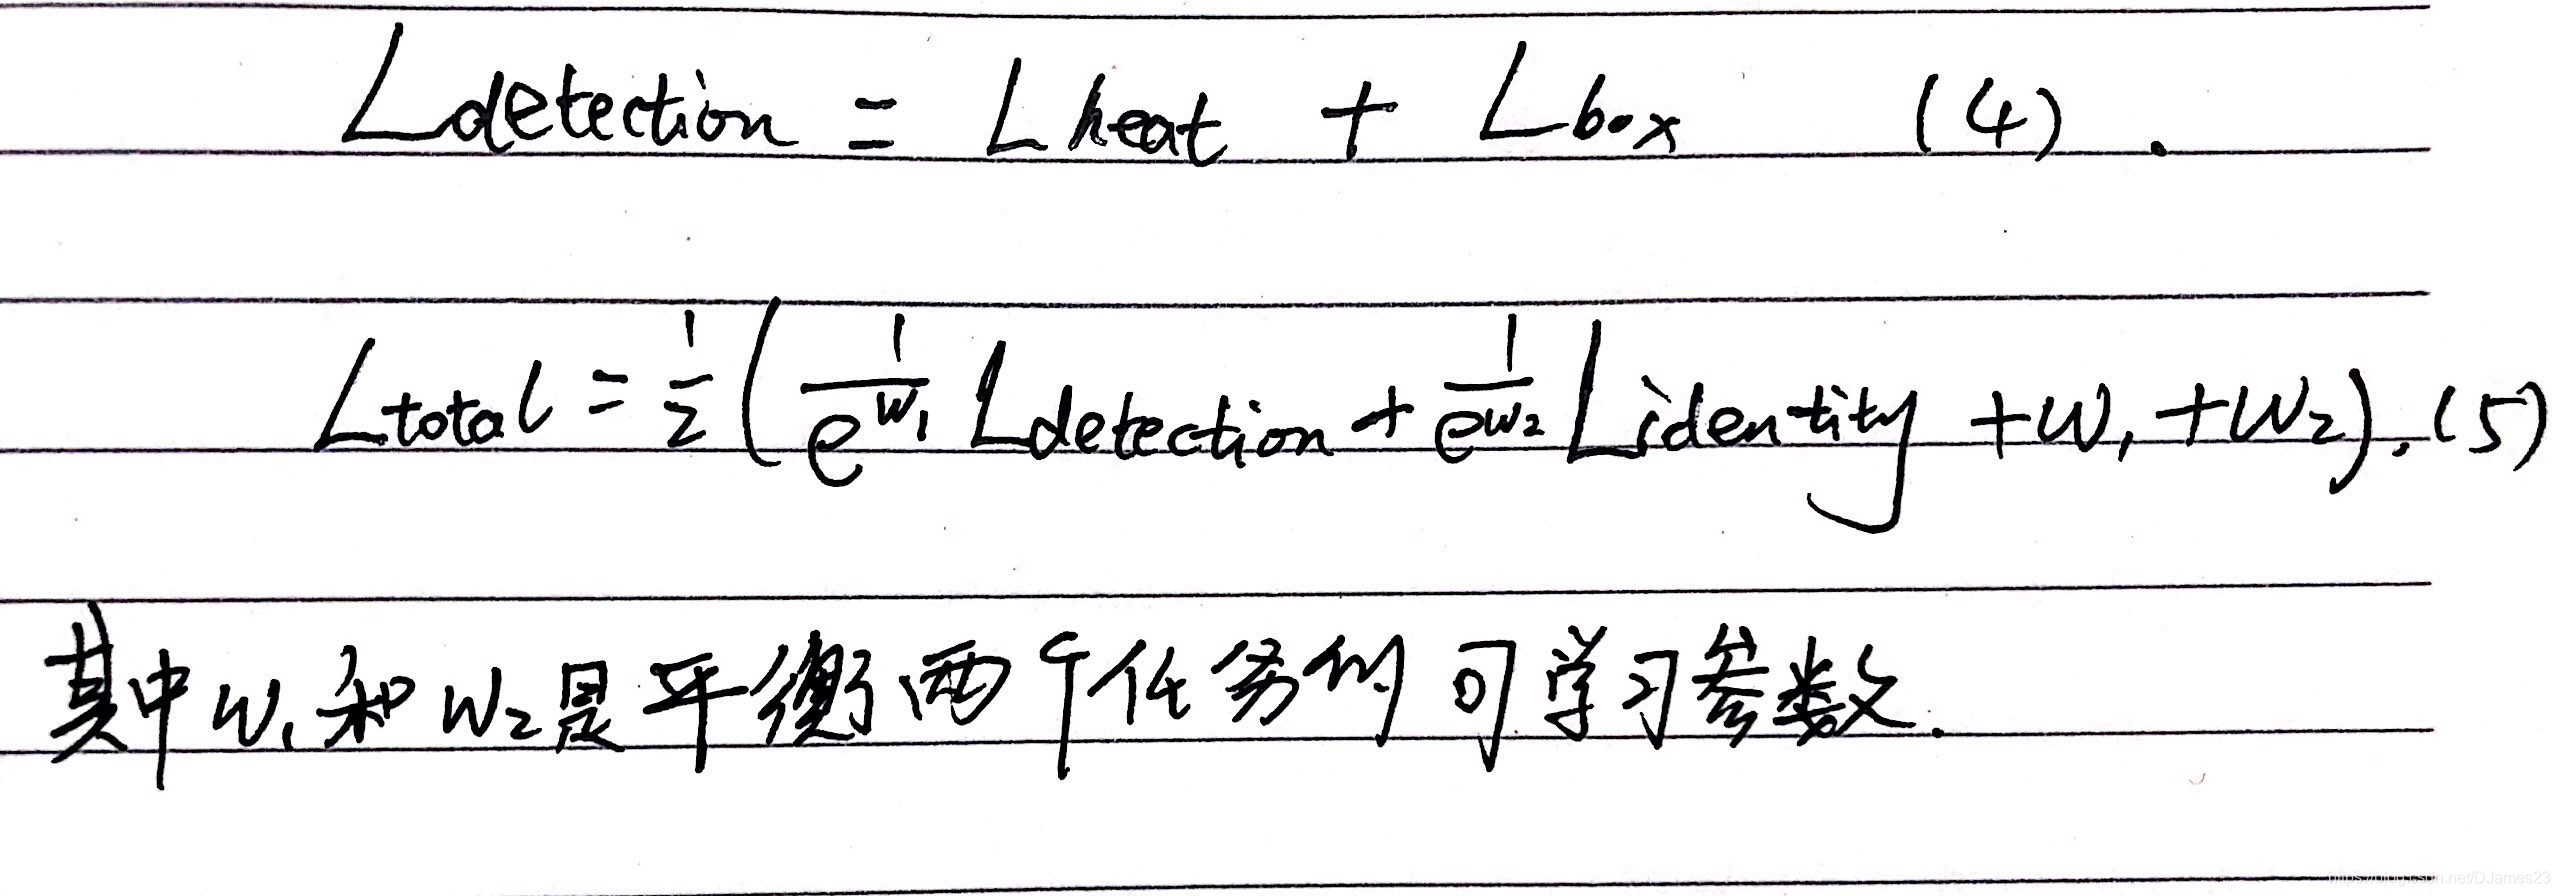 L detection = L heat + L box (4).
L total = 1/2 ( 1/e^w₁ L detection + 1/e^w₂ L identity + w₁ + w₂). (5)
其中 w₁ 和 w₂是平衡两个任务的可学习参数.
https://blog.csdn.net/DJames23